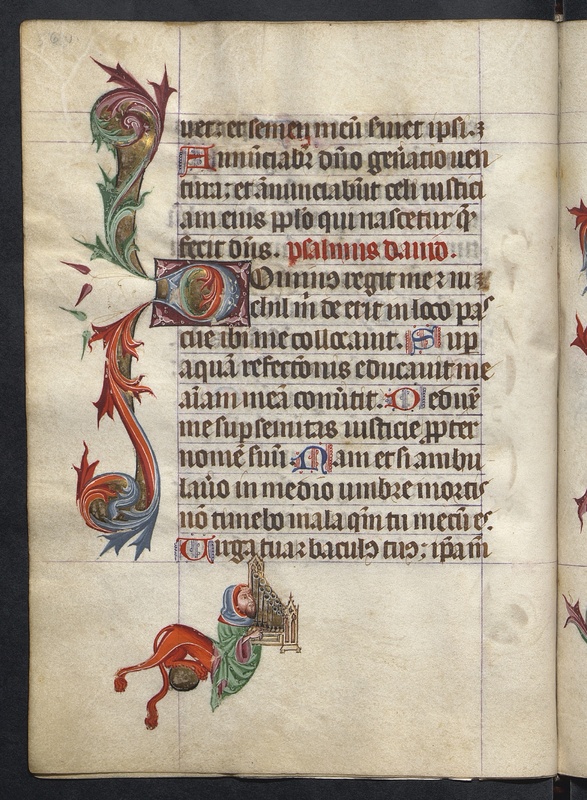 uet: et semen meū seruiet ipsi. ⁊
Annūciabr̄ dn̄o gen̄atio uen
tura: et ānunciabūt celi iustici
am eius pplo qui nascetur q̄
fecit dn̄s. psalmus dauid.
Dominus regit me ⁊ ni
chil m̄ de erit in loco pas
cue ibi me collocauit. Sup
aquā refectōnis educauit me
aīam meā conūtit. Deduxͭ
me sup semitas iusticie ꝓpter
nomē suū. Nam et si ambu
lauo in medio umbre mortis
nō timebo mala qm̄ tu mecū es.
Uirga tua ⁊ baculꝰ tuꝰ: ip̄a m̄